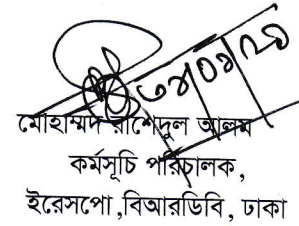 মোহাম্মদ রাশেদুল আলম
কর্মসূচি পরিচালক,
ইরেসপো,বিআরডিবি, ঢাকা